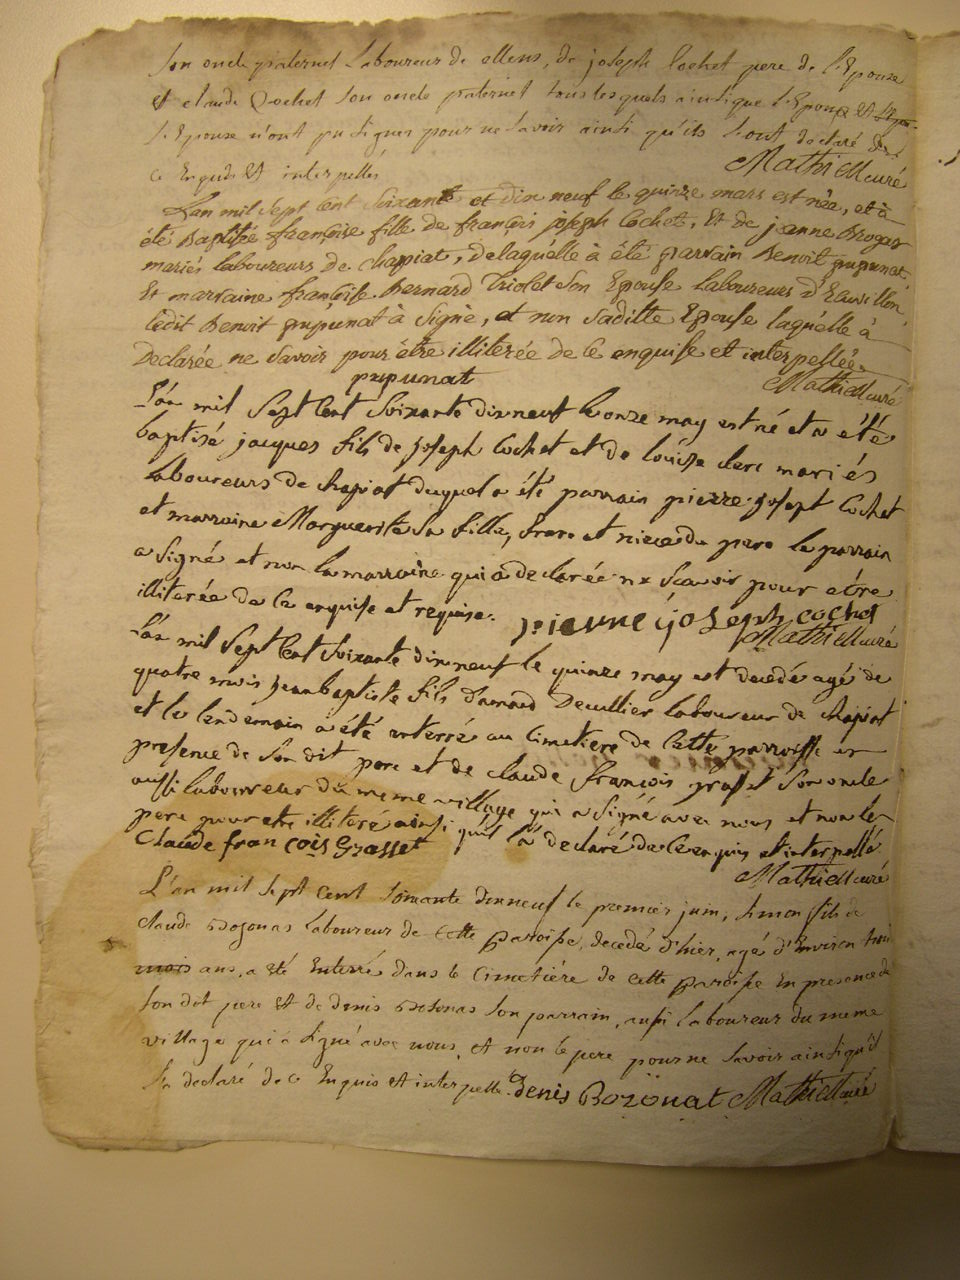 son oncle paternel Laboureur de ollens, de joseph Cochet pere de l'Epouse
et claude Cochet son oncle paternel tous lesquels ainsi que l'Epoux et
l'Epouse n'ont pu signer pour ne savoir ainsi qu'ils l'ont declaré de
ce Enquis et interpellés
Mathieu curé
L'an mil sept cent soixante et dix neuf le quinze mars est née, et à
été Baptisée françoise fille de françois joseph Cochet, Et de jeanne Brogar
mariés laboureurs de chapiat, de laquelle à été parrain Benoit pupunat
Et marraine françoise Bernard Triolet son Epouse laboureurs d'
ledit Benoit pupunat à signé, et non saditte Epouse laquelle à
Declarée ne savoir pour être illiterée de ce enquise et interpellée
pupunat
Mathieu curé
L'an mil sept cent soixante dixneuf le onze may est né et a été
baptisé jacques fils de joseph Cochet et de louise clerc mariés
laboureurs de chapiat duquel a été parrain pierre joseph Cochet
et marraine Marguerite sa fille, frere et niece du pere le parrain
a signé et non la marraine qui a declarée ne sçavoir pour etre
illiterée de ce enquise et requise.
pierre joseph cochet
Mathieu curé
L'an mil sept cent soixante dixneuf le quinze may est decedé agé de
quatre mois jean baptiste fils d'amard Decullier laboureur de chapiat
et le lendemain a été enterré au cimetiere de cette parroisse en
presence de son dit pere et de claude françois grasset son oncle
aussi laboureur du meme village qui a signé avec nous et non le
pere pour etre illiteré ainsi qu'il l'a declaré de ce enquis et interpellé
Claude francois Grasset
Mathieu curé
L'an mil sept cent soixante dixneuf le premier juin, simon fils de
claude Bozonas laboureur de cette paroisse, decedé d'hier, agé d'Environ trois
mois ans, a été Enterré dans le Cimetiére de cette paroisse En presence de
son dit pere et de denis Bozonas son parrain, aussi laboureur du meme
village qui à signé avec nous, et non le pere pour ne savoir ainsi qu'il
l'a declaré de ce Enquis et interpellé.
Denis Bozonat Mathieu curé